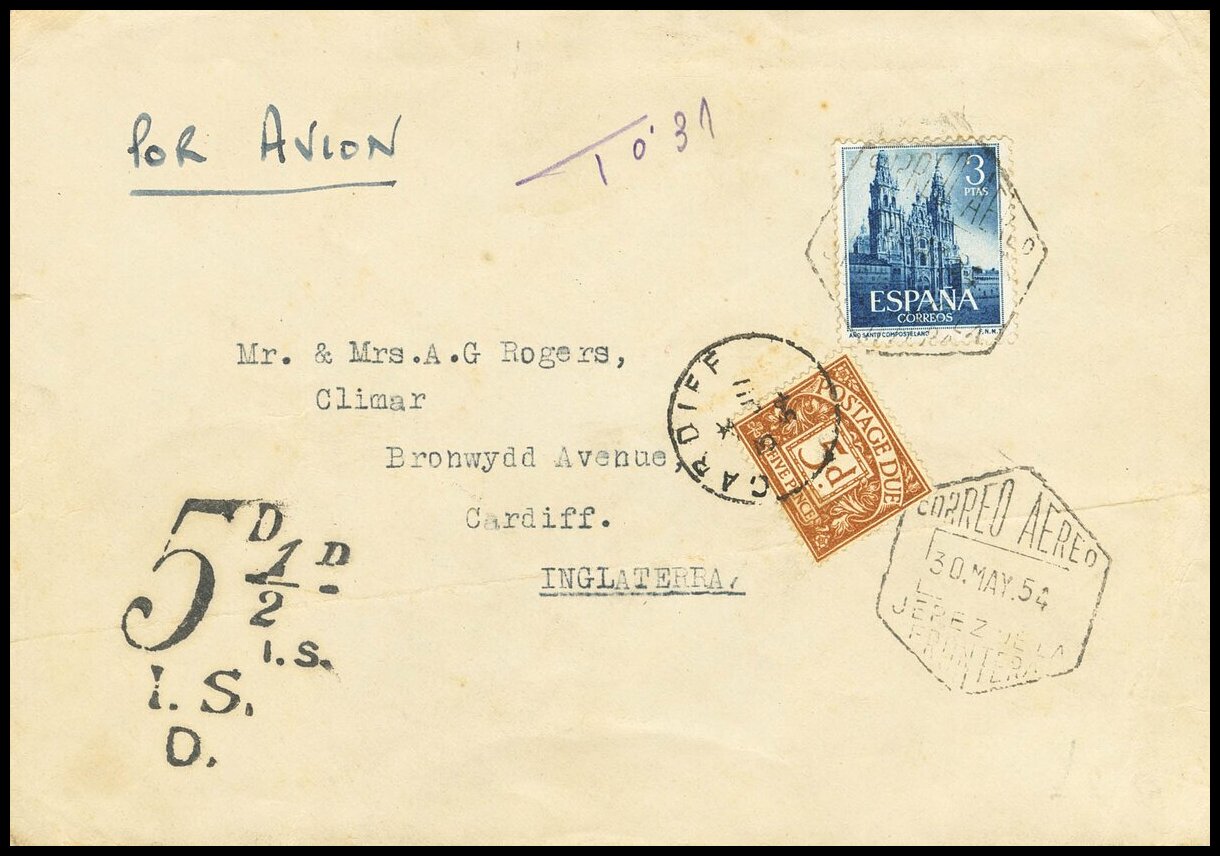 POR AVION
T 0'31
3
PTAS
ESPAÑA
CORREOS
AÑO SANTO COMPOSTELANO F.N.M.T
CORREO AEREO
Mr. & Mrs.A.G Rogers,
Climar
Bronwydd Avenue,
Cardiff.
INGLATERRA,
CARDIFF
54
POSTAGE DUE
5D.
FIVE PENCE
CORREO AEREO
30.MAY.54
JEREZ DE LA
FRONTERA
5D
I.S.
O.
1/2 D
I.S.